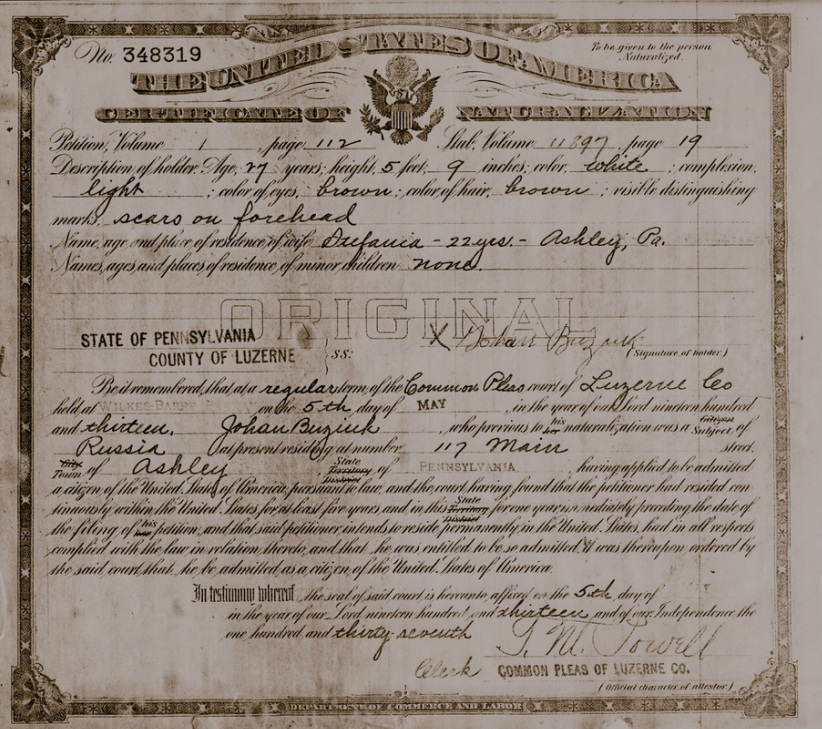 No. 348319
To be given to the person Naturalized.
THE UNITED STATES OF AMERICA
CERTIFICATE OF NATURALIZATION
Petition, Volume 1, page 112 Stub, Volume 11897, page 19
Description of holder. Age, 27 years; height, 5 feet, 9 inches; color, white; complexion,
light; color of eyes, brown; color of hair, brown; visible distinguishing
marks, scars on forehead
Name, age and place of residence of wife - 22 yrs. - Ashley, Pa.
Names, ages and places of residence of minor children none.
ORIGINAL
STATE OF PENNSYLVANIA
COUNTY OF LUZERNE
SS:
X Johan Buziuk
(Signature of holder)
Be it remembered, that at a regular term of the Common Pleas court of Luzerne Co
held at WILKES-BARRE on the 5th day of MAY, in the year of our Lord nineteen hundred
and thirteen, Johan Buziuk, who previous to his naturalization was a Subject of
Russia, at present residing at number 117 Main street,
City Town of Ashley, State Territory District of PENNSYLVANIA, having applied to be admitted
a citizen of the United States of America, pursuant to law, and the court having found that the petitioner had resided con-
tinuously within the United States for at least five years and in this State Territory District for one year immediately preceding the date of
the filing of his her petition, and that said petitioner intends to reside permanently in the United States, had in all respects
complied with the law in relation thereto, and that he was entitled to be so admitted, it was thereupon ordered by
the said court, that he be admitted as a citizen of the United States of America.
In testimony whereof the seal of said court is hereunto affixed on the 5th day of
in the year of our Lord nineteen hundred and thirteen and of our Independence the
one hundred and thirty-seventh
Clerk COMMON PLEAS OF LUZERNE CO.
(Official character of attestor)
DEPARTMENT OF COMMERCE AND LABOR